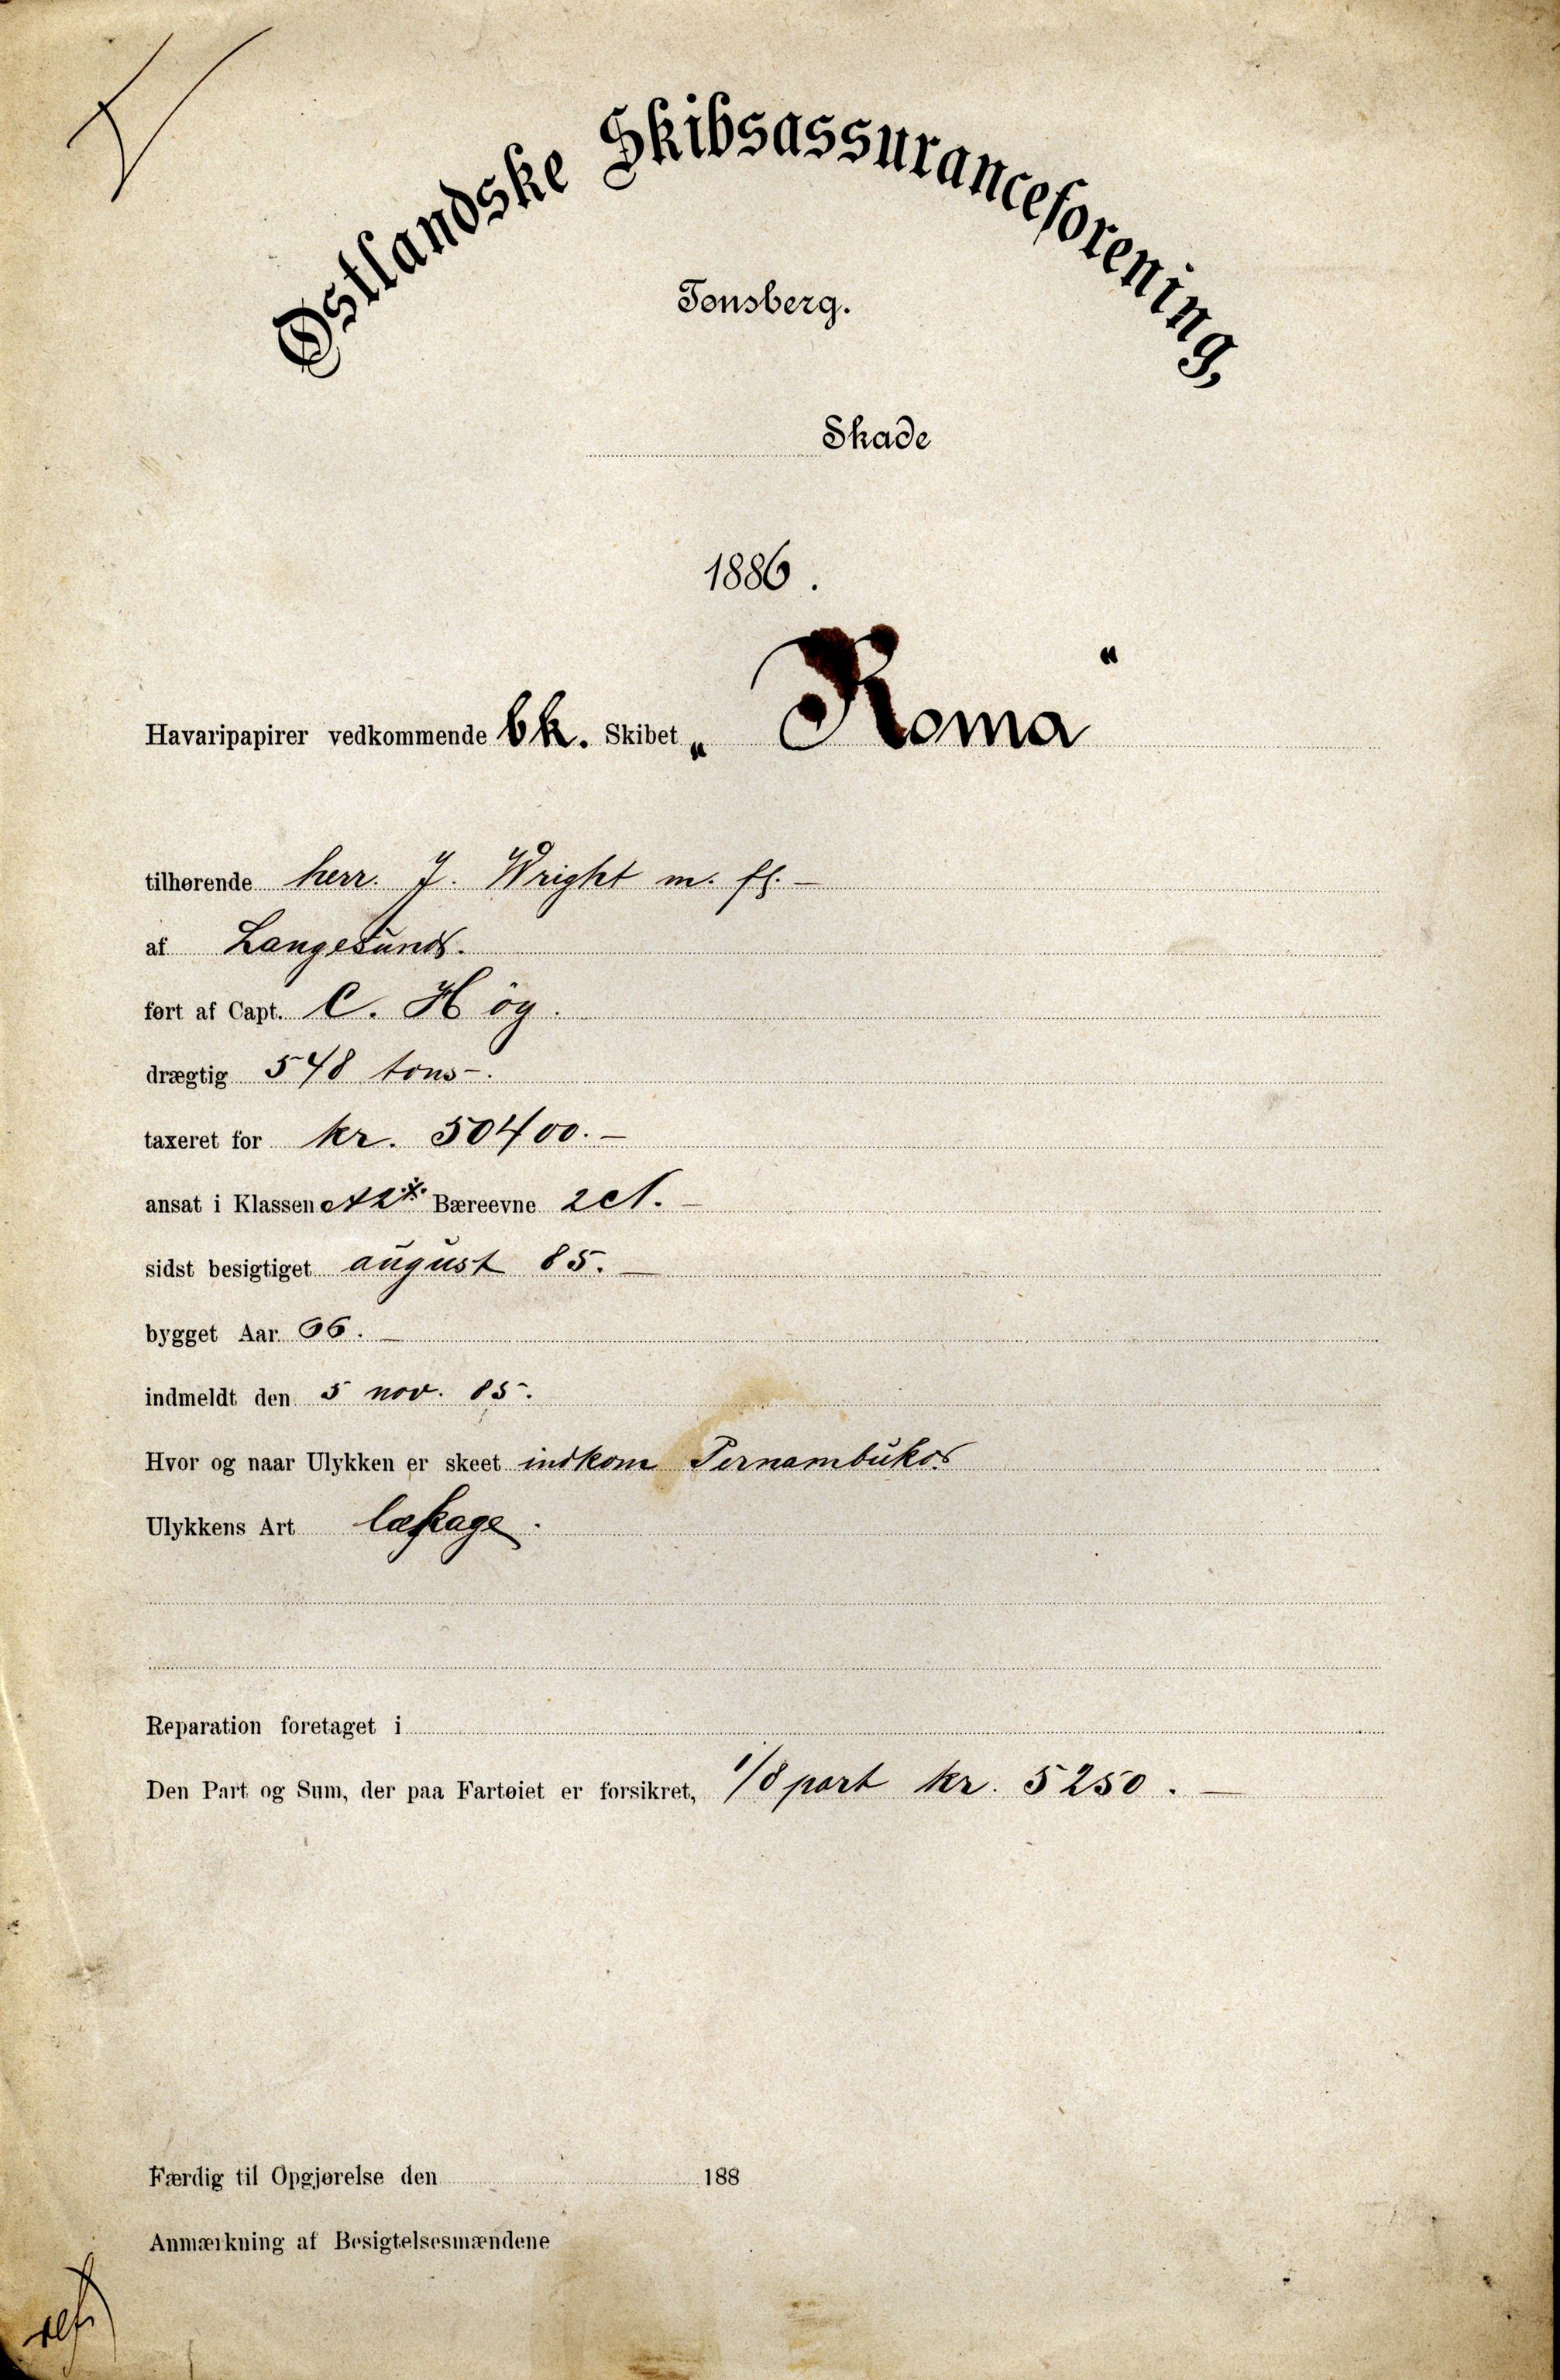 Østlandske Skibsassuranceforening,
Tønsberg.
Skade
1886.
Havaripapirer vedkommende bk. Skibet „Roma“
tilhørende herr. J. Wright m. fl. —
af Langesund.
ført af Capt. C. Hög.
drægtig 548 tons —.
taxeret for kr. 50400. —
ansat i Klassen A2* Bæreevne 2A. —
sidst besigtiget august 85. —
bygget Aar 66. —
indmeldt den 5 nov. 85.
Hvor og naar Ulykken er skeet indkom Pernambuko
Ulykkens Art lækage.
Reparation foretaget i
Den Part og Sum, der paa Fartøiet er forsikret, 1/8 part kr. 5250. —
Færdig til Opgjørelse den 188
Anmærkning af Besigtelsesmændene